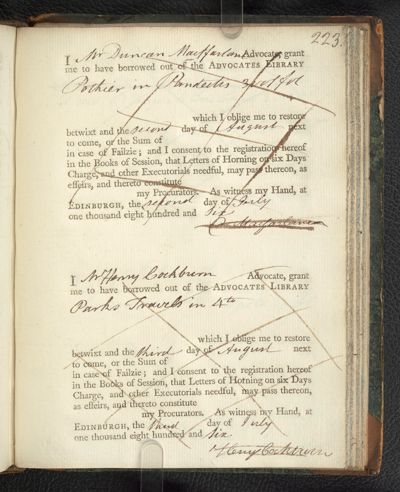 223.
I Mr Duncan Macfarlan Advocate, grant
me to have borrowed out of the ADVOCATES LIBRARY
Pothier in Pandectis
which I oblige me to restore
betwixt and the second day of August next
to come, or the Sum of
in case of Failzie; and I consent to the registration hereof
in the Books of Session, that Letters of Horning on six Days
Charge, and other Executorials needful, may pass thereon, as
effeirs, and thereto constitute
my Procurators. As witness my Hand, at
EDINBURGH, the second day of July
one thousand eight hundred and six
I Mr Henry Cockburn Advocate, grant
me to have borrowed out of the ADVOCATES LIBRARY
Parks Travels in 4to
which I oblige me to restore
betwixt and the third day of August next
to come, or the Sum of
in case of Failzie; and I consent to the registration hereof
in the Books of Session, that Letters of Horning on six Days
Charge, and other Executorials needful, may pass thereon,
as effeirs, and thereto constitute
my Procurators. As witness my Hand, at
EDINBURGH, the third day of July
one thousand eight hundred and six
Henry Cockburn